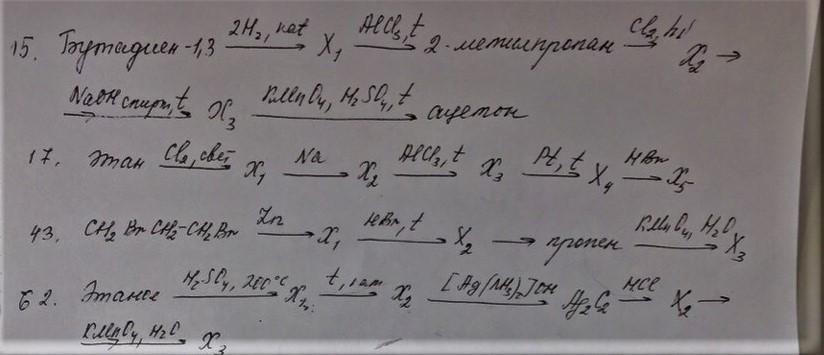 15. Бутадиен-1,3 2H₂, kat → X₁ AlCl₃, t → 2-метилпропан Cl₂, hν → X₂ →
NaOH спирт, t → X₃ KMnO₄, H₂SO₄, t → ацетон
17. Этан Cl₂, свет → X₁ Na → X₂ AlCl₃, t → X₃ Pt, t → X₄ HBr → X₅
43. CH₂BrCH₂-CH₂Br Zn → X₁ HBr, t → X₂ → пропен KMnO₄, H₂O → X₃
62. Этанол H₂SO₄, 200°C → X₁ t, кат → X₂ [Ag(NH₃)₂]OH → Ag₂C₂ HCl → X₂ →
KMnO₄, H₂O → X₃